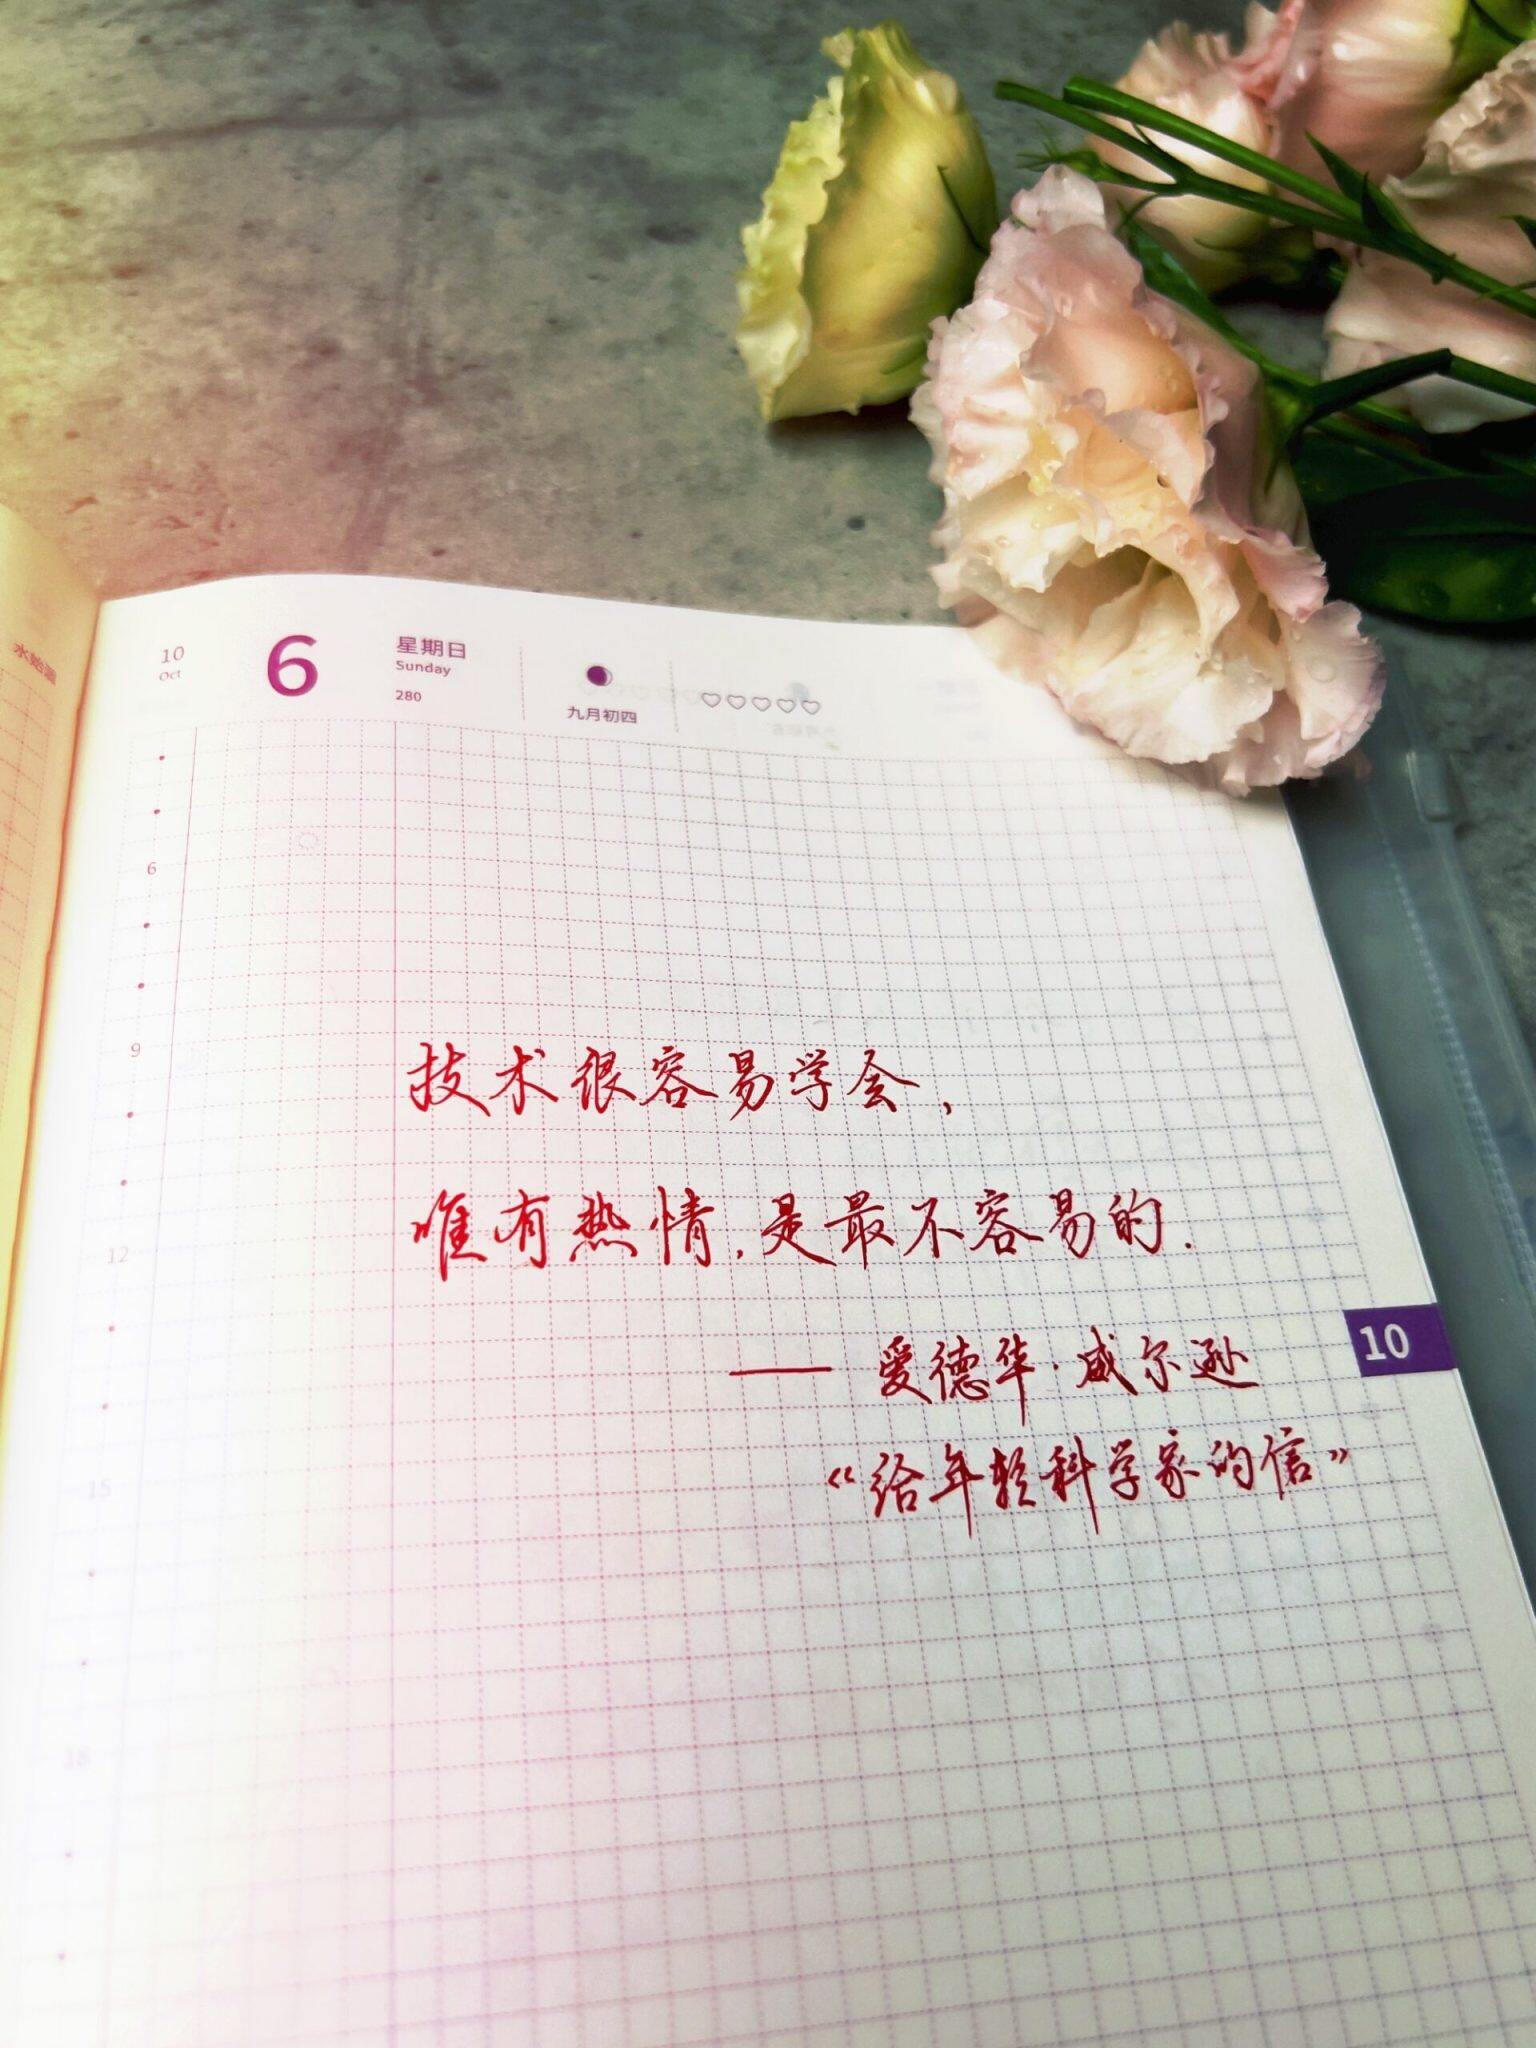 水始涸
10
Oct
6
星期日
Sunday
280
九月初四
6
9
12
15
18
技术很容易学会,
唯有热情,是最不容易的.
—— 爱德华·威尔逊
《给年轻科学家的信》
10